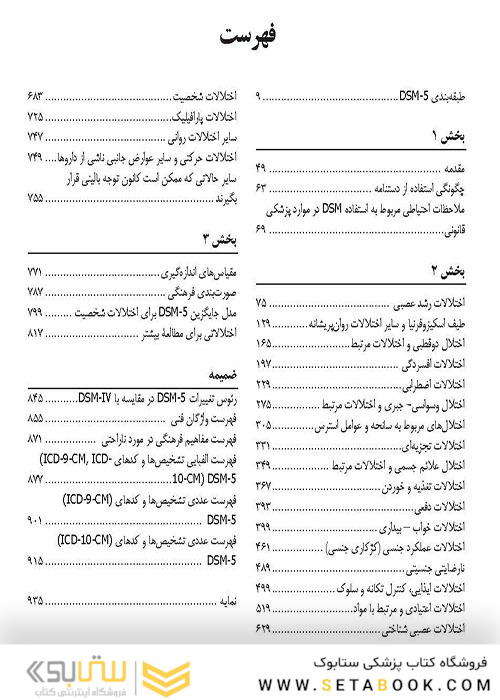 فهرست
طبقه‌بندی DSM-5 ............ ۹
بخش ۱
مقدمه ............ ۴۹
چگونگی استفاده از دستنامه ............ ۶۳
ملاحظات احتیاطی مربوط به استفاده DSM در موارد پزشکی
قانونی ............ ۶۹
بخش ۲
اختلالات رشد عصبی ............ ۷۵
طیف اسکیزوفرنیا و سایر اختلالات روان‌پریشانه ............ ۱۲۹
اختلال دوقطبی و اختلالات مرتبط ............ ۱۶۵
اختلالات افسردگی ............ ۱۹۷
اختلالات اضطرابی ............ ۲۲۹
اختلال وسواسی- جبری و اختلالات مرتبط ............ ۲۷۵
اختلال‌های مربوط به سانحه و عوامل استرس ............ ۳۰۵
اختلالات تجزیه‌ای ............ ۳۳۱
اختلال علائم جسمی و اختلالات مرتبط ............ ۳۴۹
اختلالات تغذیه و خوردن ............ ۳۶۷
اختلالات دفعی ............ ۳۹۳
اختلالات خواب – بیداری ............ ۳۹۹
اختلالات عملکرد جنسی (کژکاری جنسی) ............ ۴۶۱
نارضایتی جنسیتی ............ ۴۸۹
اختلالات ایذایی، کنترل تکانه و سلوک ............ ۴۹۹
اختلالات اعتیادی و مرتبط با مواد ............ ۵۱۹
اختلالات عصبی شناختی ............ ۶۲۹
اختلالات شخصیت ............ ۶۸۳
اختلالات پارافیلیک ............ ۷۲۵
سایر اختلالات روانی ............ ۷۴۷
اختلالات حرکتی و سایر عوارض جانبی ناشی از داروها .... ۷۴۹
سایر حالاتی که ممکن است کانون توجه بالینی قرار
بگیرند ............ ۷۵۵
بخش ۳
مقیاس‌های اندازه‌گیری ............ ۷۷۱
صورت‌بندی فرهنگی ............ ۷۸۷
مدل جایگزین DSM-5 برای اختلالات شخصیت ............ ۷۹۹
اختلالاتی برای مطالعهٔ بیشتر ............ ۸۱۷
ضمیمه
رئوس تغییرات DSM-5 در مقایسه با DSM-IV ............ ۸۴۵
فهرست واژگان فنی ............ ۸۵۵
فهرست مفاهیم فرهنگی در مورد ناراحتی ............ ۸۷۱
فهرست الفبایی تشخیص‌ها و کدهای (ICD-9-CM, ICD-
10-CM) DSM-5 ............ ۸۷۷
فهرست عددی تشخیص‌ها و کدهای (ICD-9-CM)
DSM-5 ............ ۹۰۱
فهرست عددی تشخیص‌ها و کدهای (ICD-10-CM)
DSM-5 ............ ۹۱۵
نمایه ............ ۹۳۵
فروشگاه کتاب پزشکی ستابوک
WWW.SETABOOK.COM
ستابوک
فروشگاه اینترنتی کتاب